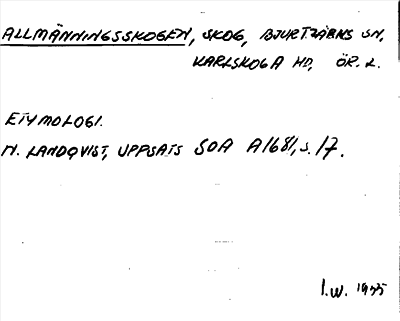 ALLMÄNNINGSSKOGEN, SKOG, BJURTJÄRNS SN,
KARLSKOGA HD, ÖR. L.
ETYMOLOGI.
M. LANDQVIST, UPPSATS SOA A1681, S. 17.
I.W. 1955